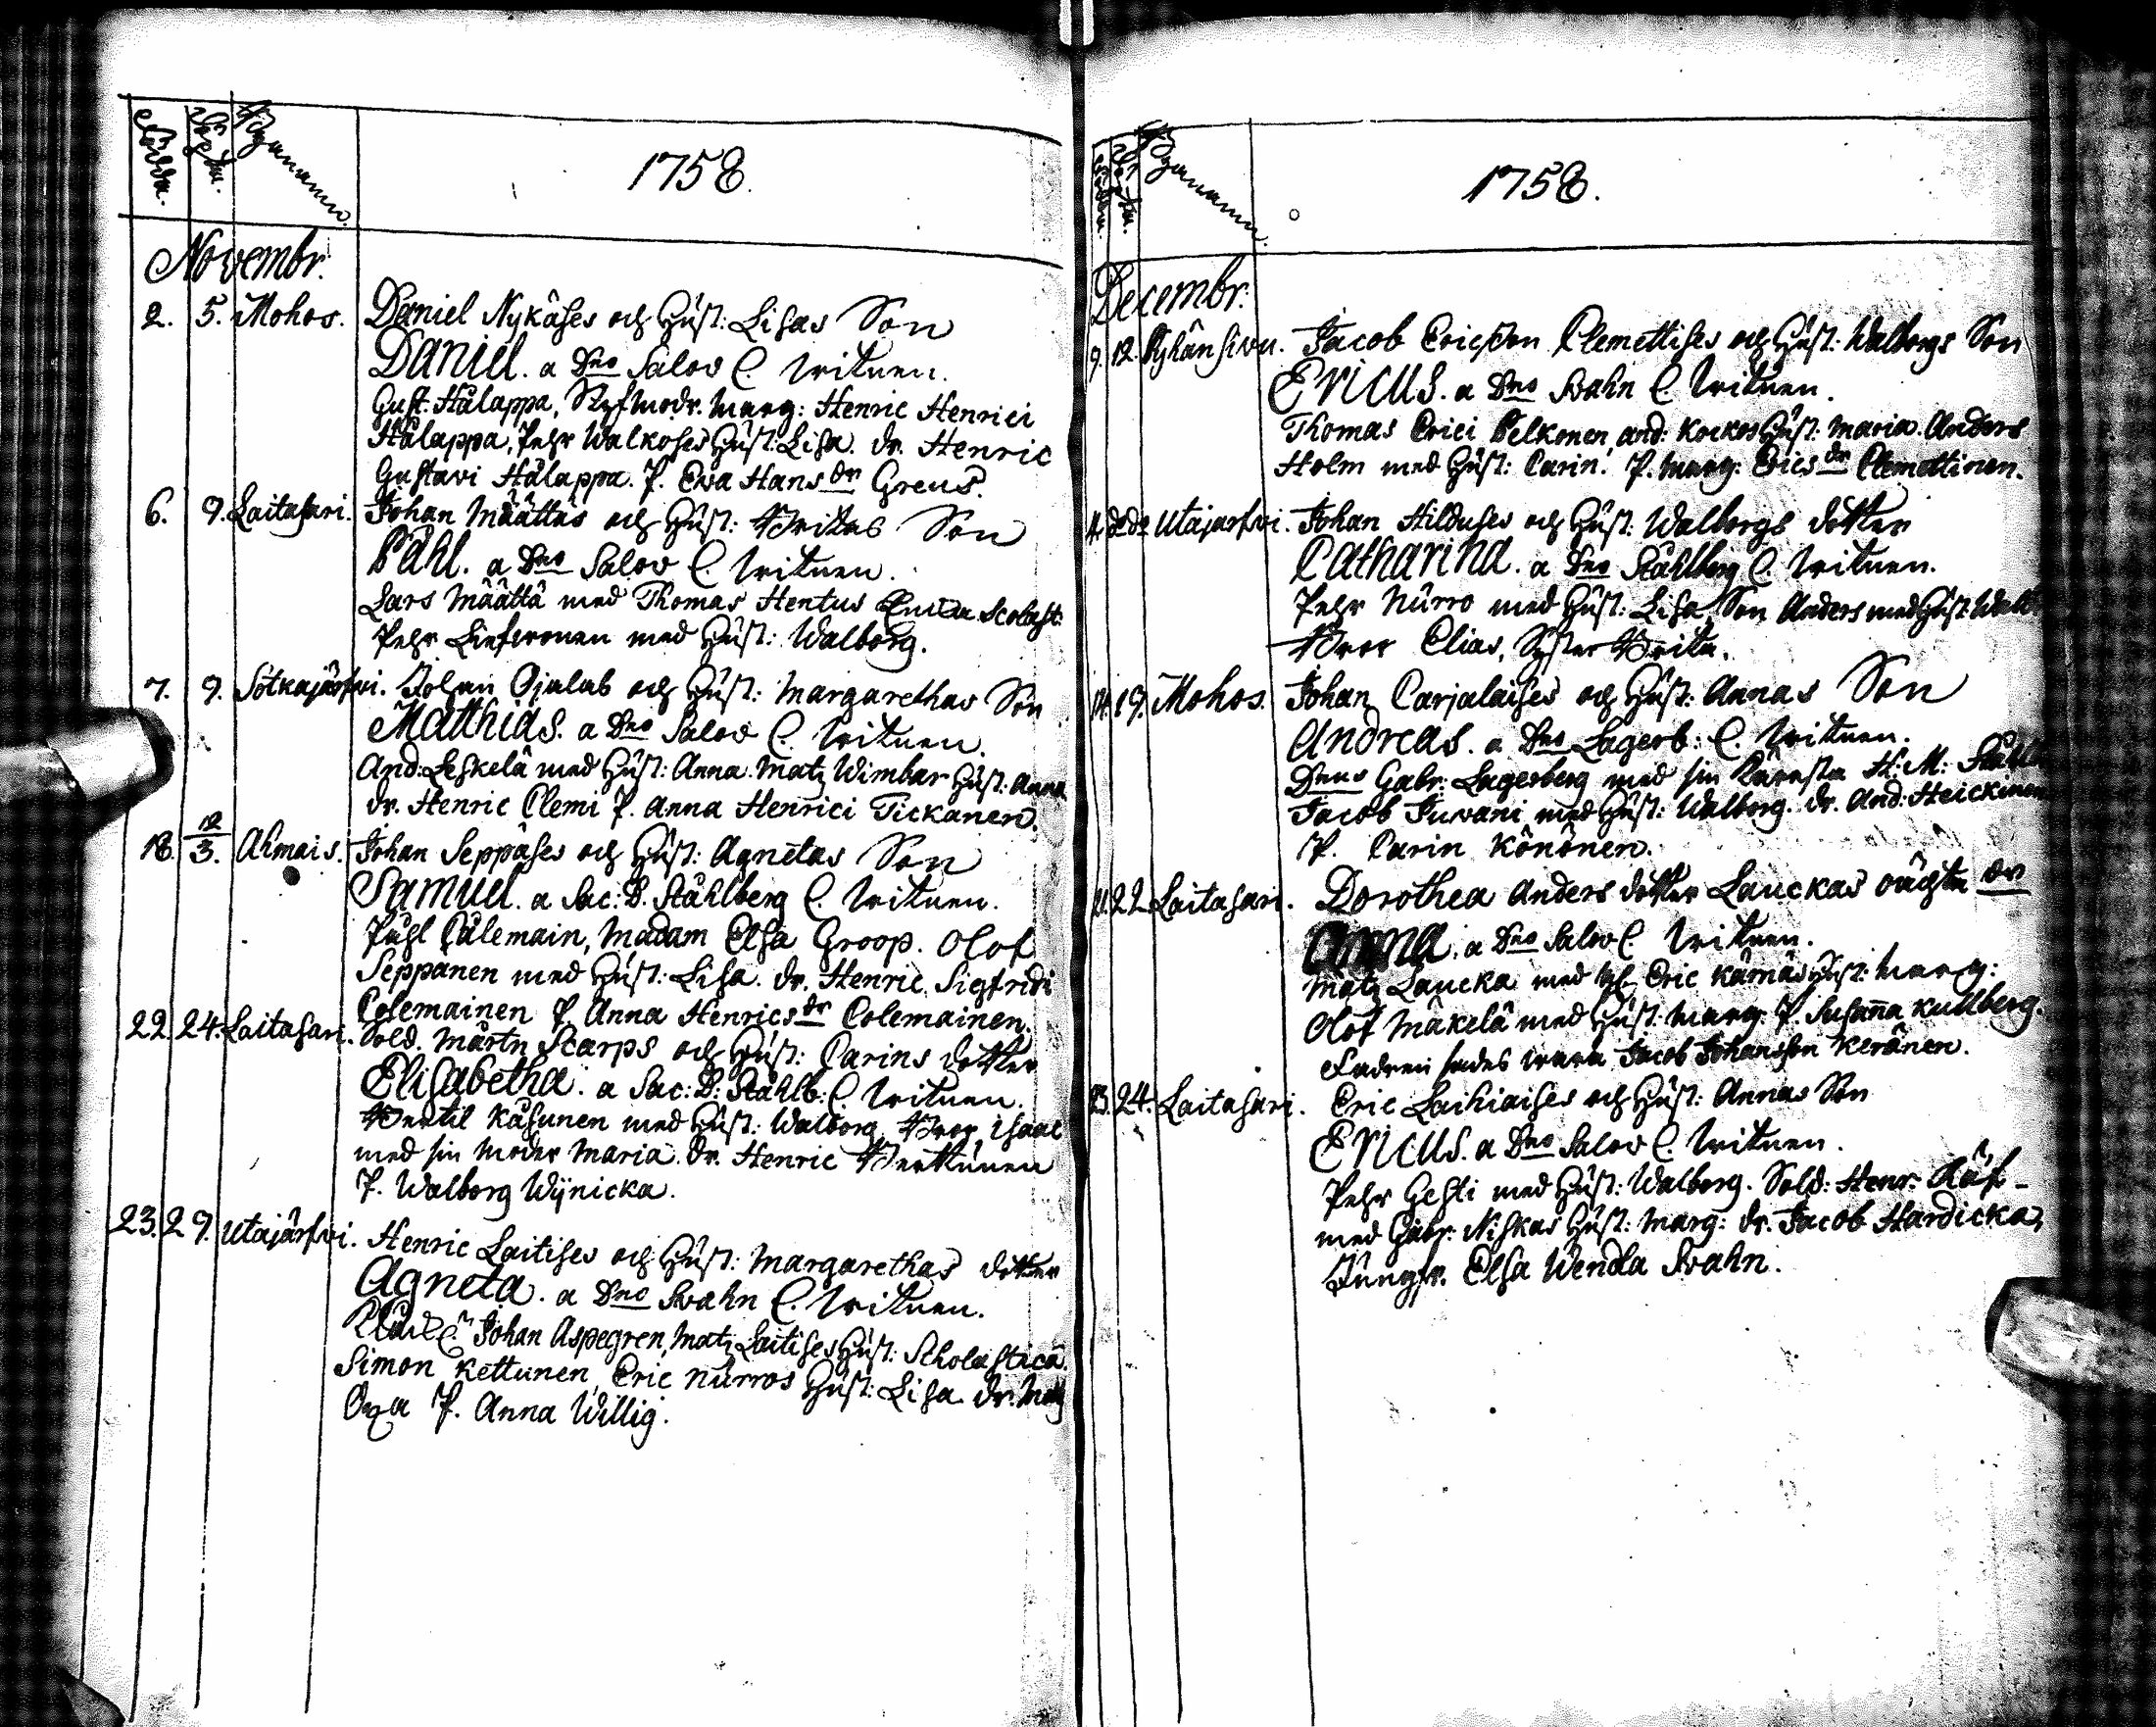 Födda. Döpta. Bynamn.
1758.
Novembr.
2. 5. Mohos. Daniel Nykäses och Hust: Lisas Son
Daniel. a Dno Salov C. Witnen.
Gust. Hålappa, Styfmodr. Marg: Henric Henrici
Hålappa, Pehr Walkoses Hust: Lisa. dr. Henric
Gustavi Hålappa. P. Eva Hans dr Greus.
6. 9. Laitasari. Johan Määttäs och Hust: Britas Son
Påhl. a Dno Salov C. Witnen.
Lars Määttä med Thomas Hentus Scolast:
Pehr Liefwonen med Hust: Walborg.
7. 9. Sotkajärfwi. Johan Ojalas och Hust: Margarethas Son
Matthias. a Dno Salov C. Witnen.
And: Leskelä med Hust: Anna. Matz Wimbar Hust: Anna
dr. Henric Clemi P. Anna Henrici Tickanen.
18. 12/3. Ahmais. Johan Seppäses och Hust: Agnetas Son
Samuel. a Sac: D. Ståhlberg C. Witnen.
Påhl Cålemain, Madam Elsa Groop. Olof
Seppänen med Hust: Lisa. dr. Henric Sigfridi
Colemainen P. Anna Henrics dr Colemainen.
22. 24. Laitasari. Sold. Mårtn Skarps och Hust: Carins dotter
Elisabetha. a Sac: D: Ståhlb: C. Witnen.
Bertil Käsunen med Hust: Walborg, Bror Isaac
med sin Moder Maria. dr. Henric Berttunen
P. Walborg Wÿnicka.
23. 29. Utajärfwi. Henric Laitises och Hust: Margarethas dotter
Agneta. a Dno Svahn C. Witnen.
Johan Aspegren, Matz Laitises Hust: Scholastica.
Simon Kettunen, Eric Nurros Hust: Lisa. dr. Matz
Oxa P. Anna Willig.
Födda. Döpta. Bynamn.
1758.
Decembr.
9. 12. Pyhänsivu. Jacob Ericson Clemettises och Hust: Walborgs Son
Ericus. a Dno Svahn C. Witnen.
Thomas Erici Pelkonen, And: Kockos Hust: Maria. Anders
Holm med Hust: Carin. P. Marg: Erics dr Clemettinen.
Utajärfwi. Johan Hilduses och Hust: Walborgs dotter
Catharina. a Dno Ståhlberg C. Witnen.
Pehr Nurro med Hust: Lisa, Son Anders med Hust: Walb.
Bror Elias, Syster Brita.
19. Mohos. Johan Carjalaises och Hust: Annas Son
Andreas. a Dno Lagerb: C. Witnen.
Dnus Gabr: Lagerberg med sin Käresta H: M:
Jacob Juvani med Hust: Walborg. dr. And: Heickinen
P. Carin Könönen.
22. Laitasari. Dorothea Anders dotter Lauckas oächta dr
Anna. a Dno Salov C. Witnen.
Matz Laucka med Eric Kärnäs Hust: Marg:
Olof Mäkelä med Hust: Marg: P. Susanna Kullberg.
Fadren sades wara Jacob Johansson Keränen.
23. 24. Laitasari. Eric Laihiaises och Hust: Annas Son
Ericus. a Dno Salov C. Witnen.
Pehr Gesti med Hust: Walborg. Sold: Henr: Räf
med Gabr: Niskas Hust: Marg: dr. Jacob Hardicka,
Jungfr. Elsa Wendla Svahn.